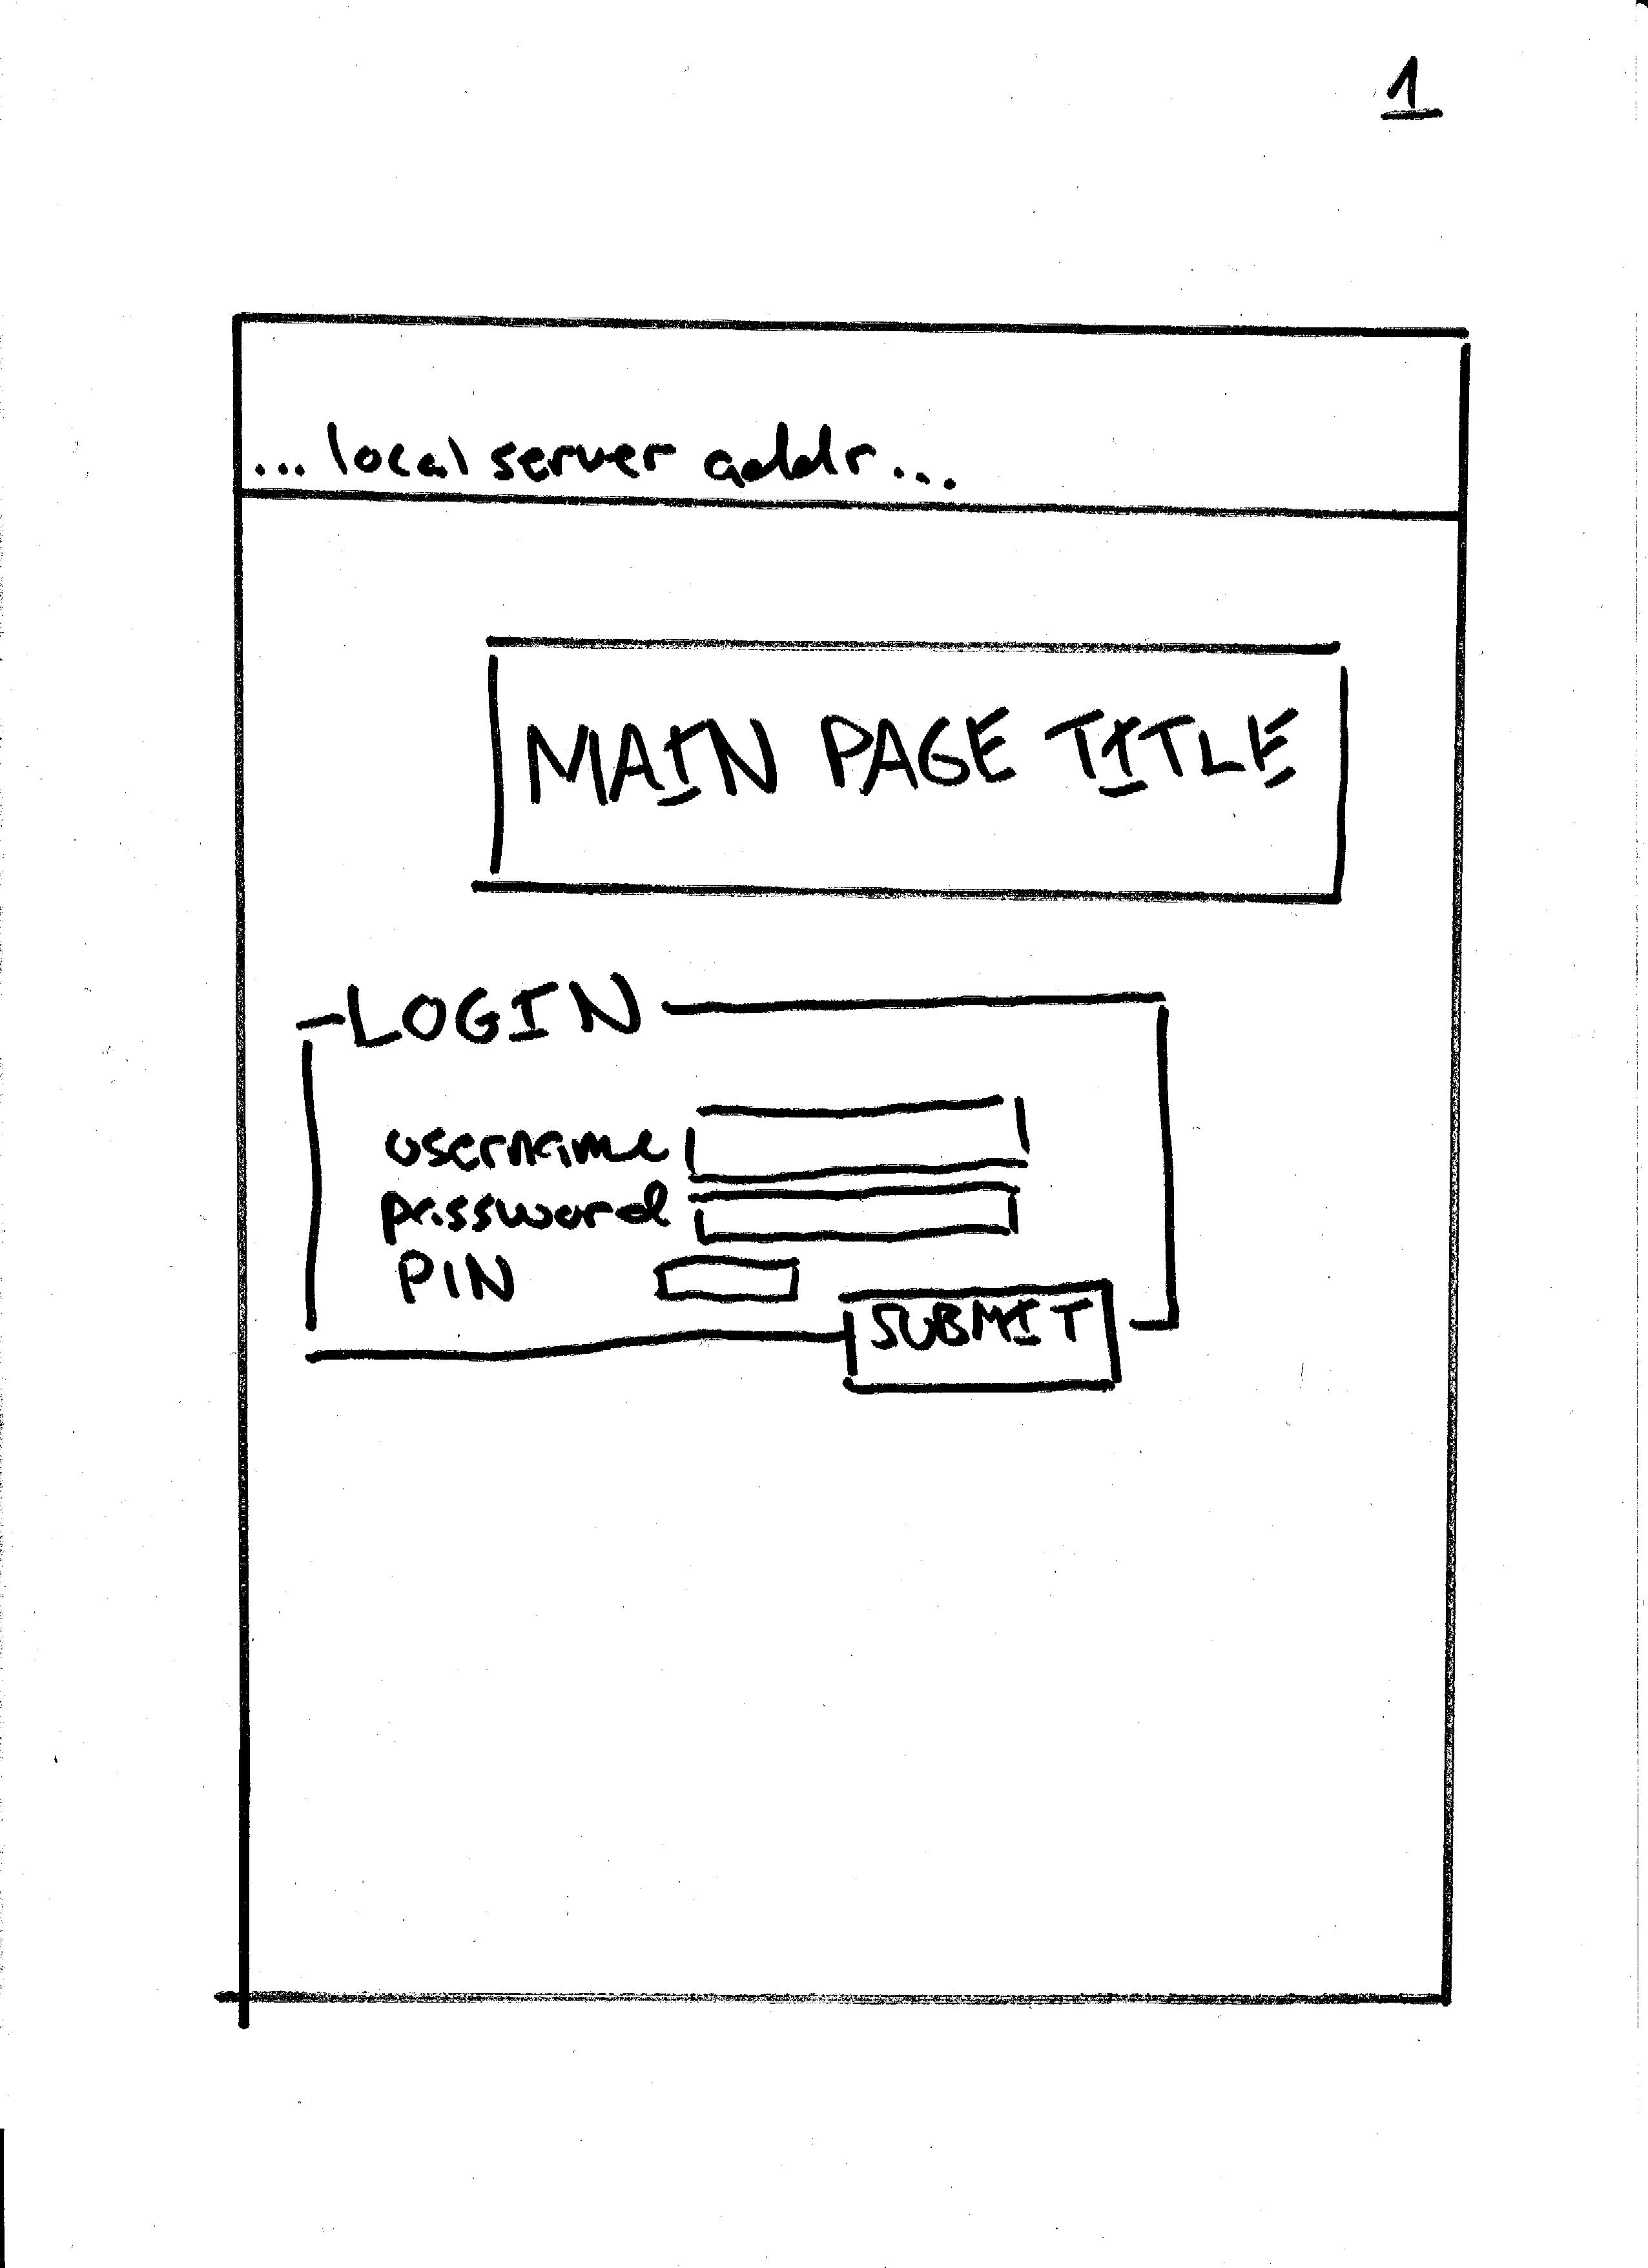 1
...local server addr...
MAIN PAGE TITLE
LOGIN
username
password
PIN
SUBMIT